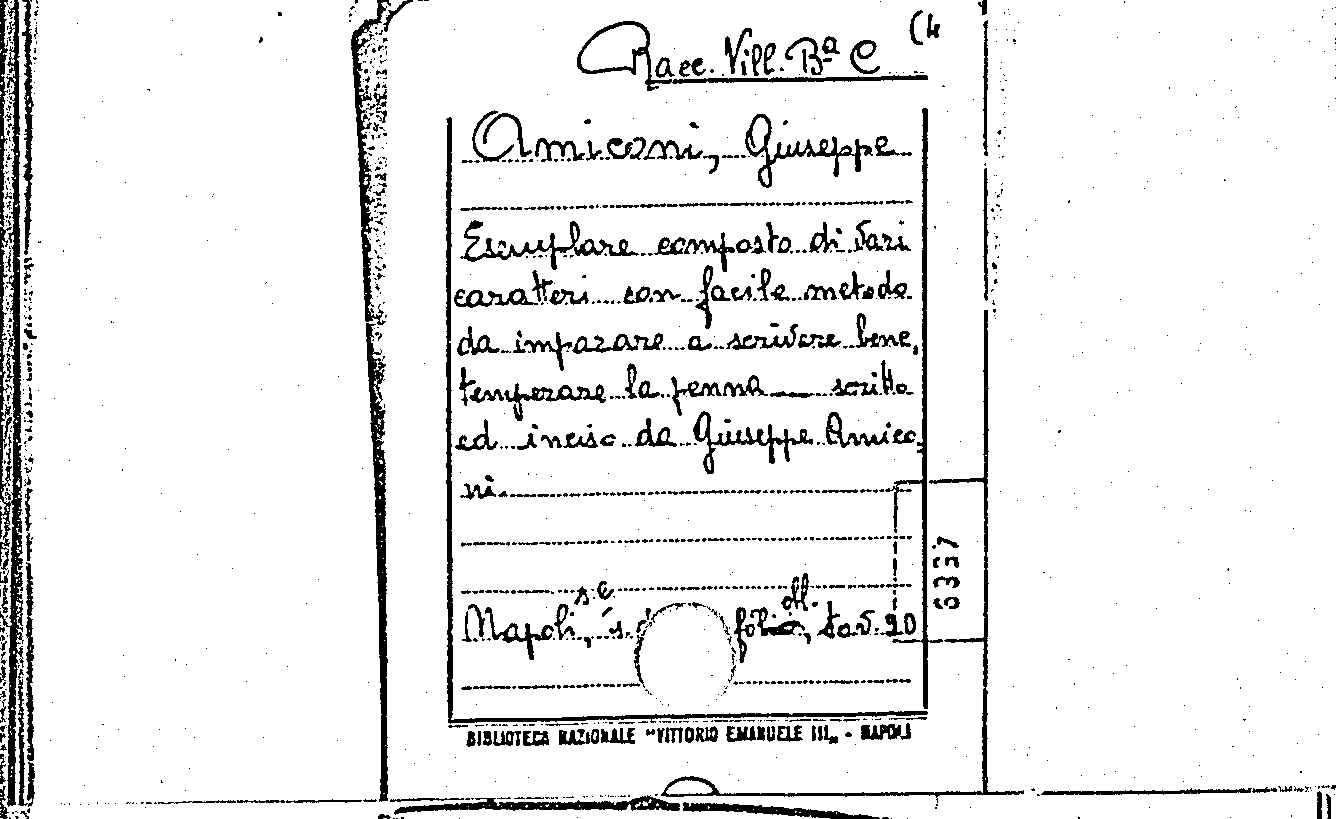 Racc. Vill. Bª C (4
Amiconi, Giuseppe
Esemplare composto di vari
caratteri con facile metodo
da imparare a scrivere bene,
temperare la penna — scritto
ed inciso da Giuseppe Amico-
ni.
s. e. obl.
Napoli, s. d. folio, tav. 20
6337
BIBLIOTECA NAZIONALE "VITTORIO EMANUELE III„ - NAPOLI